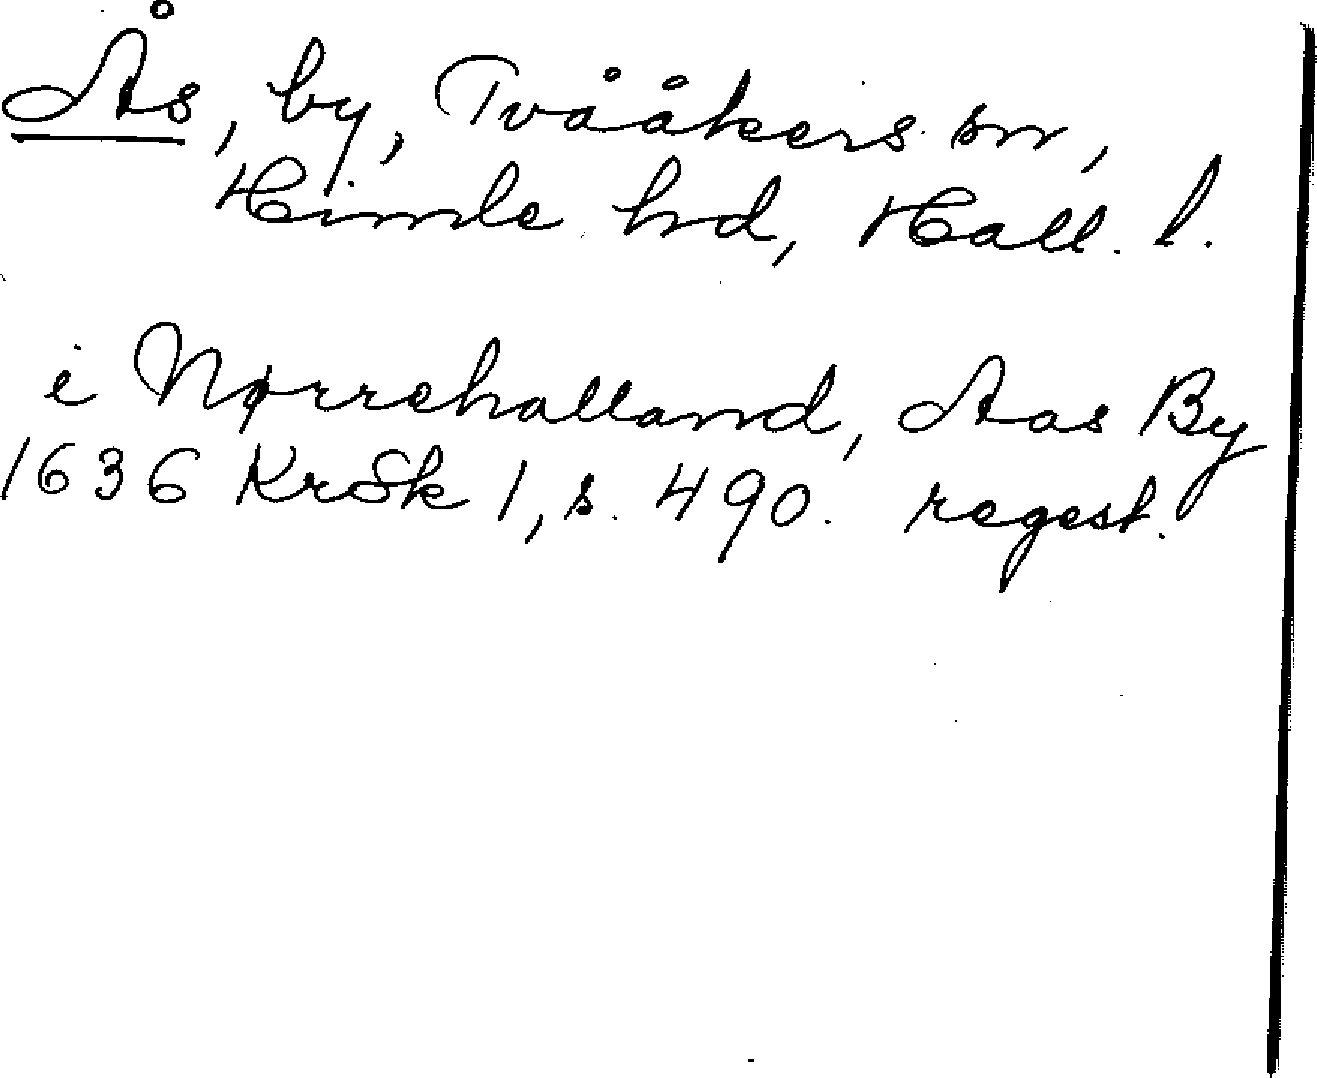 Ås, by, Tvååkers sn,
Himle hd, Hall. l.
i Nørrehalland, Aas By
1636 KrSk 1, s. 490. regest.